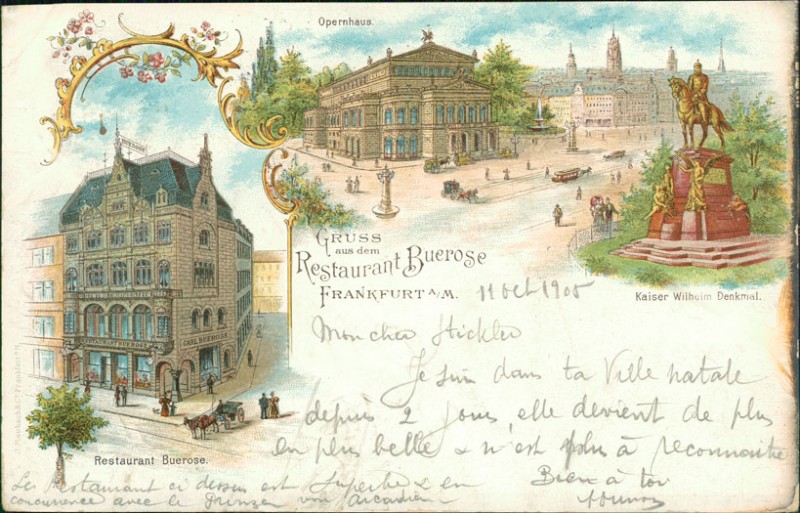 Opernhaus.
GRUSS
aus dem
Restaurant Buerose
FRANKFURT A/M.
Kaiser Wilhelm Denkmal.
RESTAURANT BUEROSE
CARL BUEROSE
Restaurant Buerose.
11 Oct 1905
Mon cher Stickler
Je suis dans ta Ville natale
depuis 2 jours elle devient de plus
en plus belle & n'est plus à reconnaitre
Bien à toi
Le restaurant ci dessus est superbe & en
concurrence avec le Prinzen von Arcadien